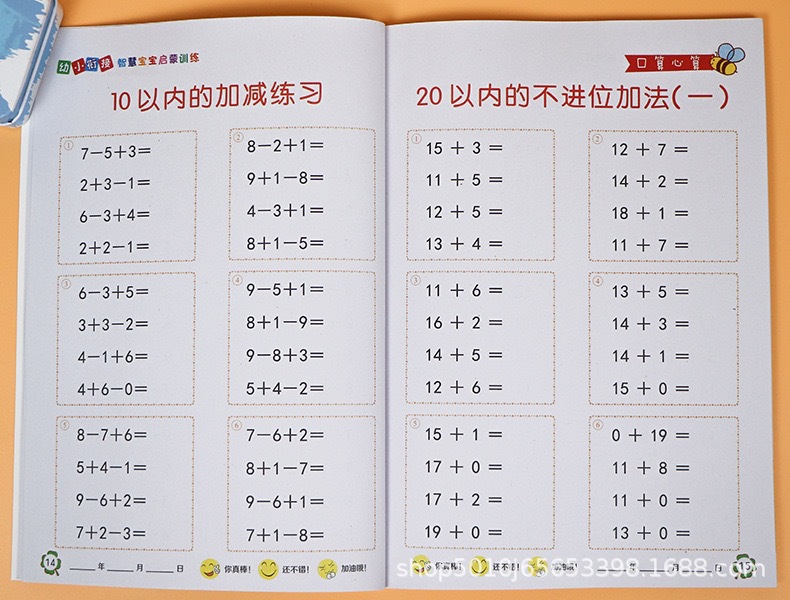 幼小衔接 智慧宝宝启蒙训练
10以内的加减练习
①
7－5＋3＝
2＋3－1＝
6－3＋4＝
2＋2－1＝
②
8－2＋1＝
9＋1－8＝
4－3＋1＝
8＋1－5＝
③
6－3＋5＝
3＋3－2＝
4－1＋6＝
4＋6－0＝
④
9－5＋1＝
8＋1－9＝
9－8＋3＝
5＋4－2＝
⑤
8－7＋6＝
5＋4－1＝
9－6＋2＝
7＋2－3＝
⑥
7－6＋2＝
8＋1－7＝
9－6＋1＝
7＋1－8＝
14 ____年____月____日 你真棒! 还不错! 加油哦!
口算心算
20以内的不进位加法(一)
①
15 ＋ 3 ＝
11 ＋ 5 ＝
12 ＋ 5 ＝
13 ＋ 4 ＝
②
12 ＋ 7 ＝
14 ＋ 2 ＝
18 ＋ 1 ＝
11 ＋ 7 ＝
③
11 ＋ 6 ＝
16 ＋ 2 ＝
14 ＋ 5 ＝
12 ＋ 6 ＝
④
13 ＋ 5 ＝
14 ＋ 3 ＝
14 ＋ 1 ＝
15 ＋ 0 ＝
⑤
15 ＋ 1 ＝
17 ＋ 0 ＝
17 ＋ 2 ＝
19 ＋ 0 ＝
⑥
0 ＋ 19 ＝
11 ＋ 8 ＝
11 ＋ 0 ＝
13 ＋ 0 ＝
你真棒! 还不错! 加油哦! ____年____月____日 15
shop5016j65653398.1688.com